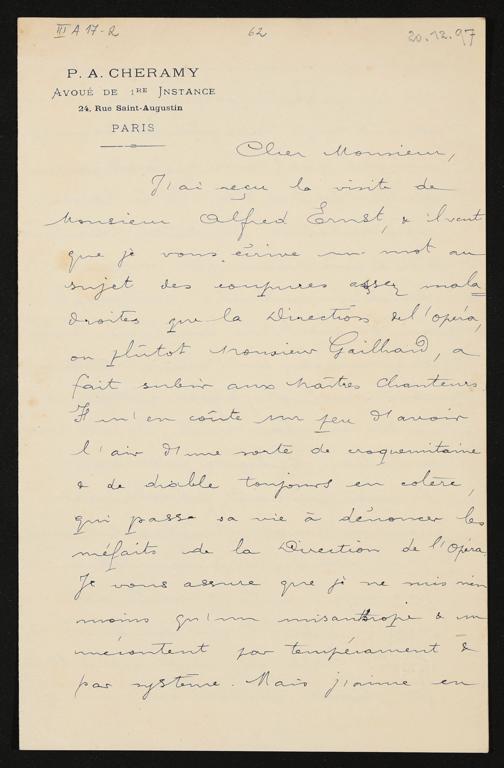 III A 17-2 62 20.12.97
P. A. CHERAMY
AVOUÉ DE 1RE INSTANCE
24, Rue Saint-Augustin
PARIS
Cher Monsieur,
J'ai reçu la visite de
Monsieur Alfred Ernst, & il veut
que je vous écrive un mot au
sujet des coupures assez mala=
droites que la Direction de l'Opéra,
ou plûtot Monsieur Gailhard, a
fait subir aux Maîtres Chanteurs.
Il m'en coûte un peu d'avoir
l'air d'une sorte de croquemitaine
& de diable toujours en colère,
qui passe sa vie à dénoncer les
méfaits de la Direction de l'Opéra.
Je vous assure que je ne suis rien
moins qu'un misanthrope & un
mécontent par tempérament &
par système. Mais j'aime en